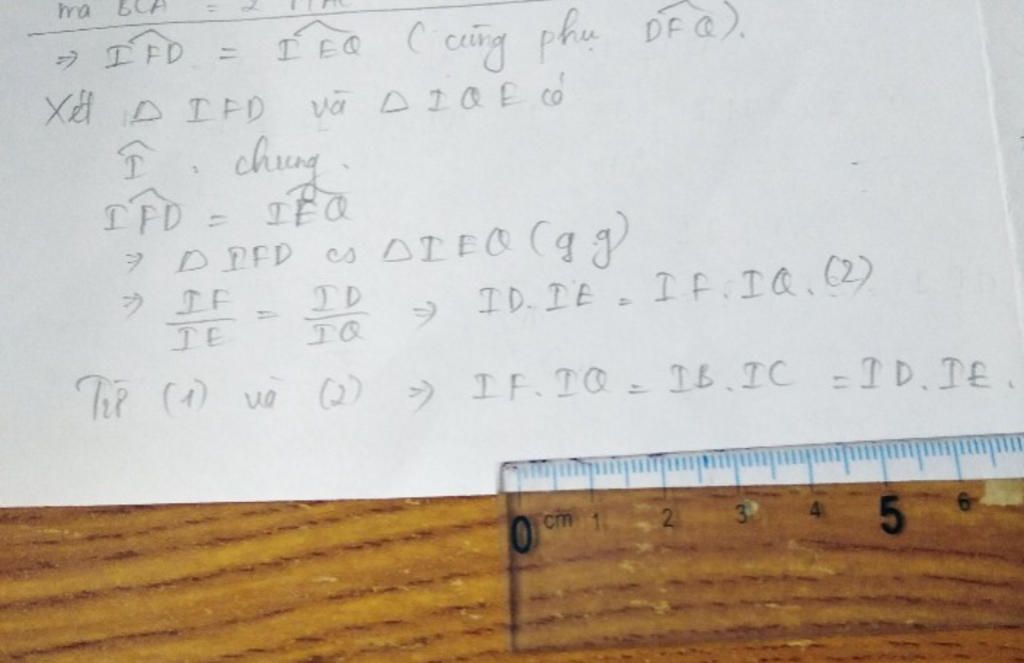 mà BCA = 2
⇒ IFD = IEQ (cùng phụ DFQ).
Xét Δ IFD và Δ IQE có
Î . chung.
IFD = IEQ
⇒ Δ IFD ∽ Δ IEQ (g g)
⇒ IF/IE = ID/IQ ⇒ ID.IE = IF.IQ. (2)
Từ (1) và (2) ⇒ IF.IQ = IB.IC = ID.IE.
0 cm 1 2 3 4 5 6